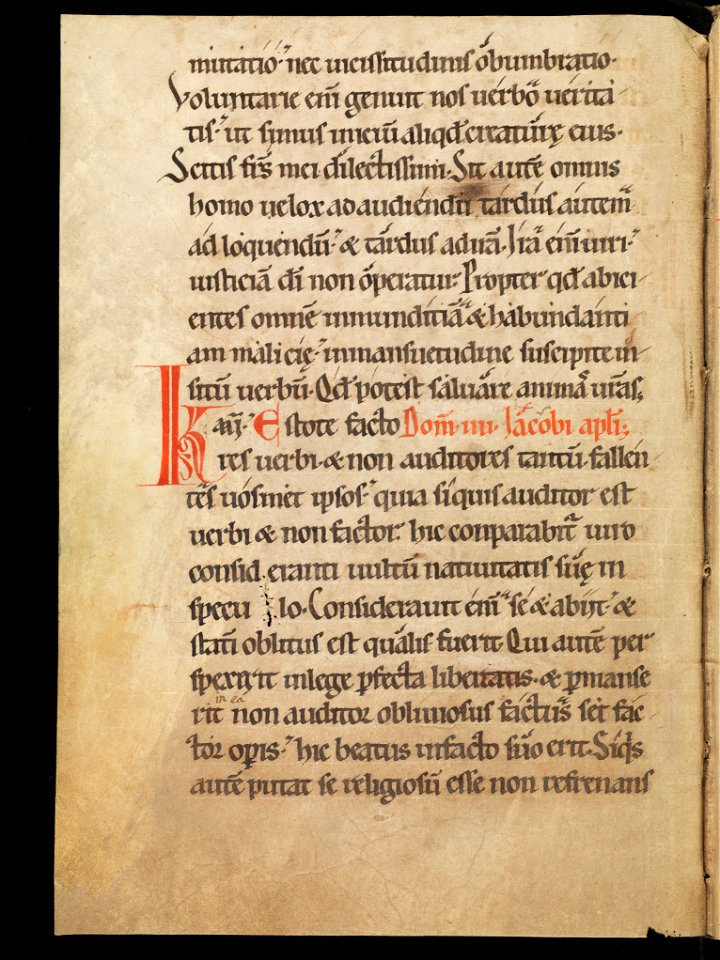 mutatio· nec uicissitudinis obumbratio·
Voluntarie em̄ genuit nos uerbo uerita
tis· ut simus iniciū aliqđ creaturę eius·
Scitis fr̄s mei dilectissimi· Sit autē omnis
homo uelox ad audiendū tardus autem
ad loquendū· & tardus ad irā· Ira em̄ uiri·
iusticiā dī non operatur· Propter qđ abici
entes omnē inmunditiā & habundanti
am malicię· in mansuetudine suscipite in
sitū uerbū· Qđ potest saluare animas ur̄as;
Kar̄i· Estote facto Dom̄· iiii· Iacobi apłi;
res uerbi· & non auditores tantū· fallen
tēs uosmet ipsos· quia siquis auditor est
uerbi & non factor· hic conparabit̄ uiro
consideranti uultū natiuitatis suę in
specu lo· Considerauit em̄ se & abiit· &
statī oblitus est qualis fuerit· Qui autē per
spexerit in lege pfecta libertatis· & pmanse
rit in ea non auditor obliuiosus factus set fac
tor opis· hic beatus in facto suo erit· Siqs
autē putat se religiosū esse non refrenans